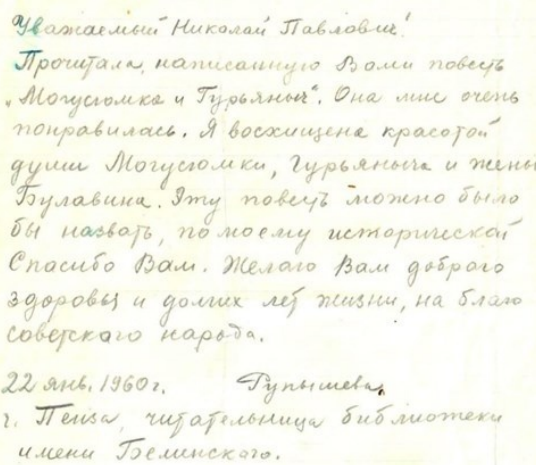 Уважаемый Николай Павлович!
Прочитала, написанную Вами повесть
„Могусюмка и Гурьяныч". Она мне очень
понравилась. Я восхищена красотой
души Могусюмки, Гурьяныча и жены
Булавина. Эту повесть можно было
бы назвать, по моему исторической
Спасибо Вам. Желаю Вам доброго
здоровья и долгих лет жизни, на благо
советского народа.
22 янв. 1960г.
г. Пенза, читательница библиотеки
имени Белинского.